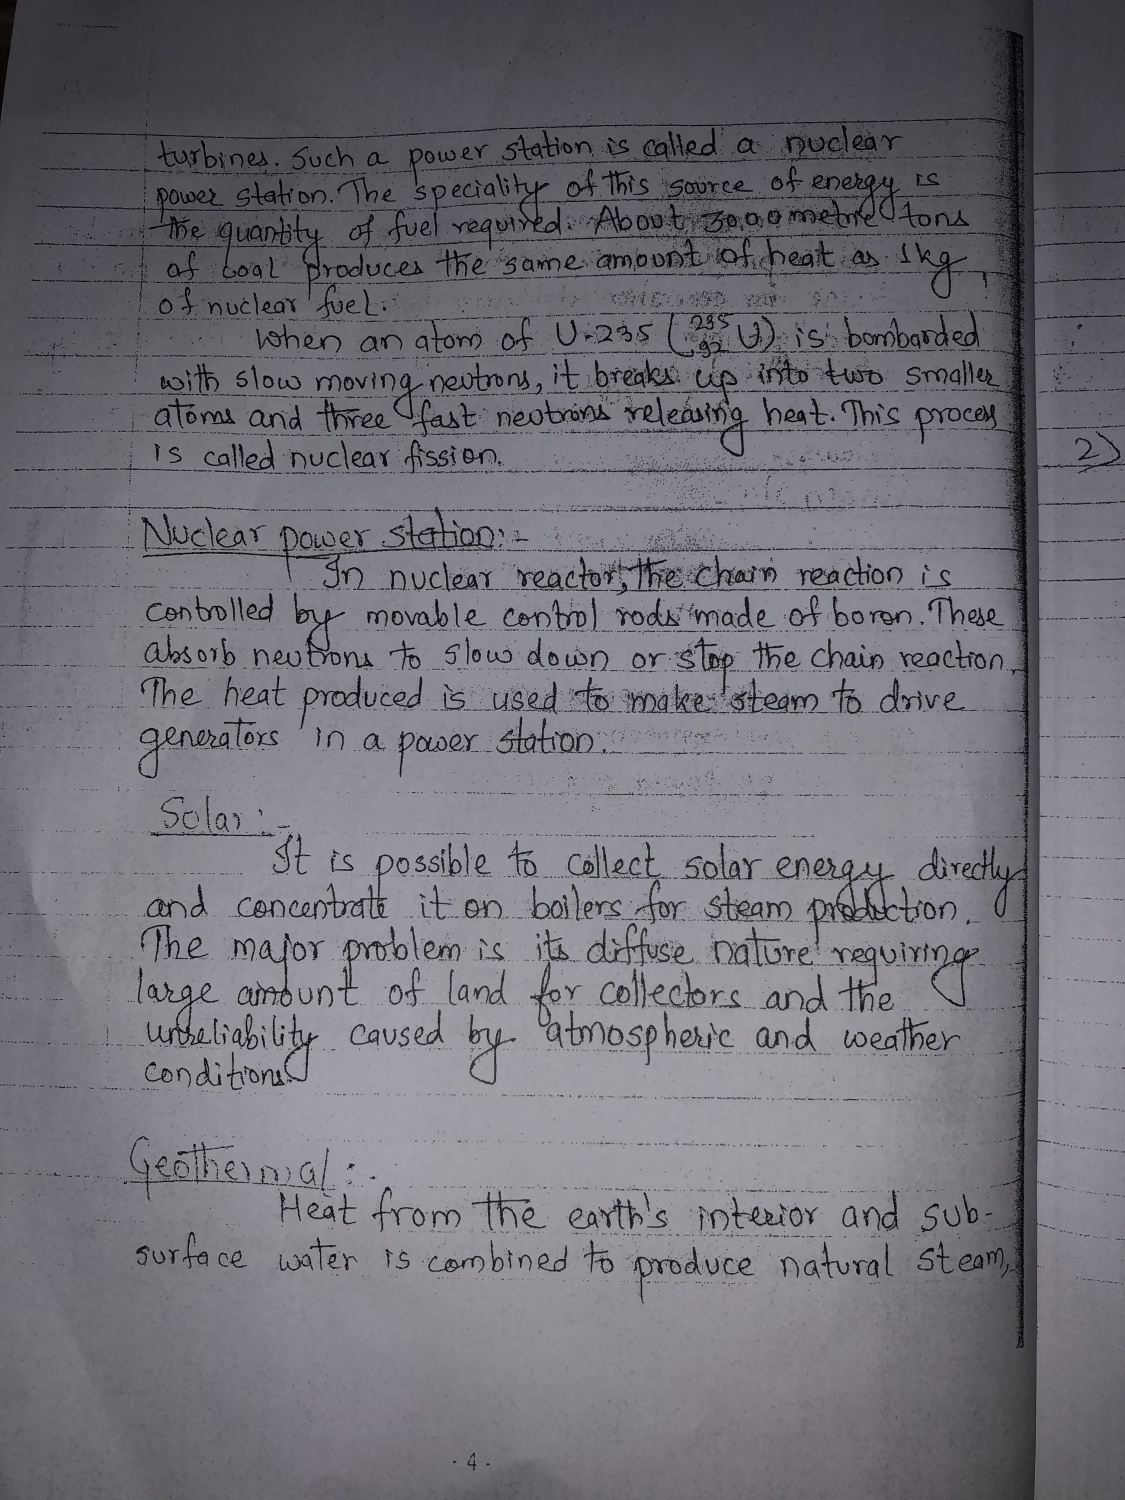 turbines. Such a power station is called a nuclear
power station. The speciality of this source of energy is
the quantity of fuel required. About 3000 metric tons
of coal produces the same amount of heat as 1kg
of nuclear fuel.
When an atom of U-235 (²³⁵₉₂U) is bombarded
with slow moving neutrons, it breaks up into two smaller
atoms and three fast neutrons releasing heat. This process
is called nuclear fission.
2)
Nuclear power station:-
In nuclear reactor, the chain reaction is
controlled by movable control rods made of boron. These
absorb neutrons to slow down or stop the chain reaction.
The heat produced is used to make steam to drive
generators in a power station.
Solar:-
It is possible to collect solar energy directly
and concentrate it on boilers for steam production.
The major problem is its diffuse nature requiring
large amount of land for collectors and the
unreliability caused by atmospheric and weather
conditions.
Geothermal:-
Heat from the earth's interior and sub-
surface water is combined to produce natural steam,
- 4 -